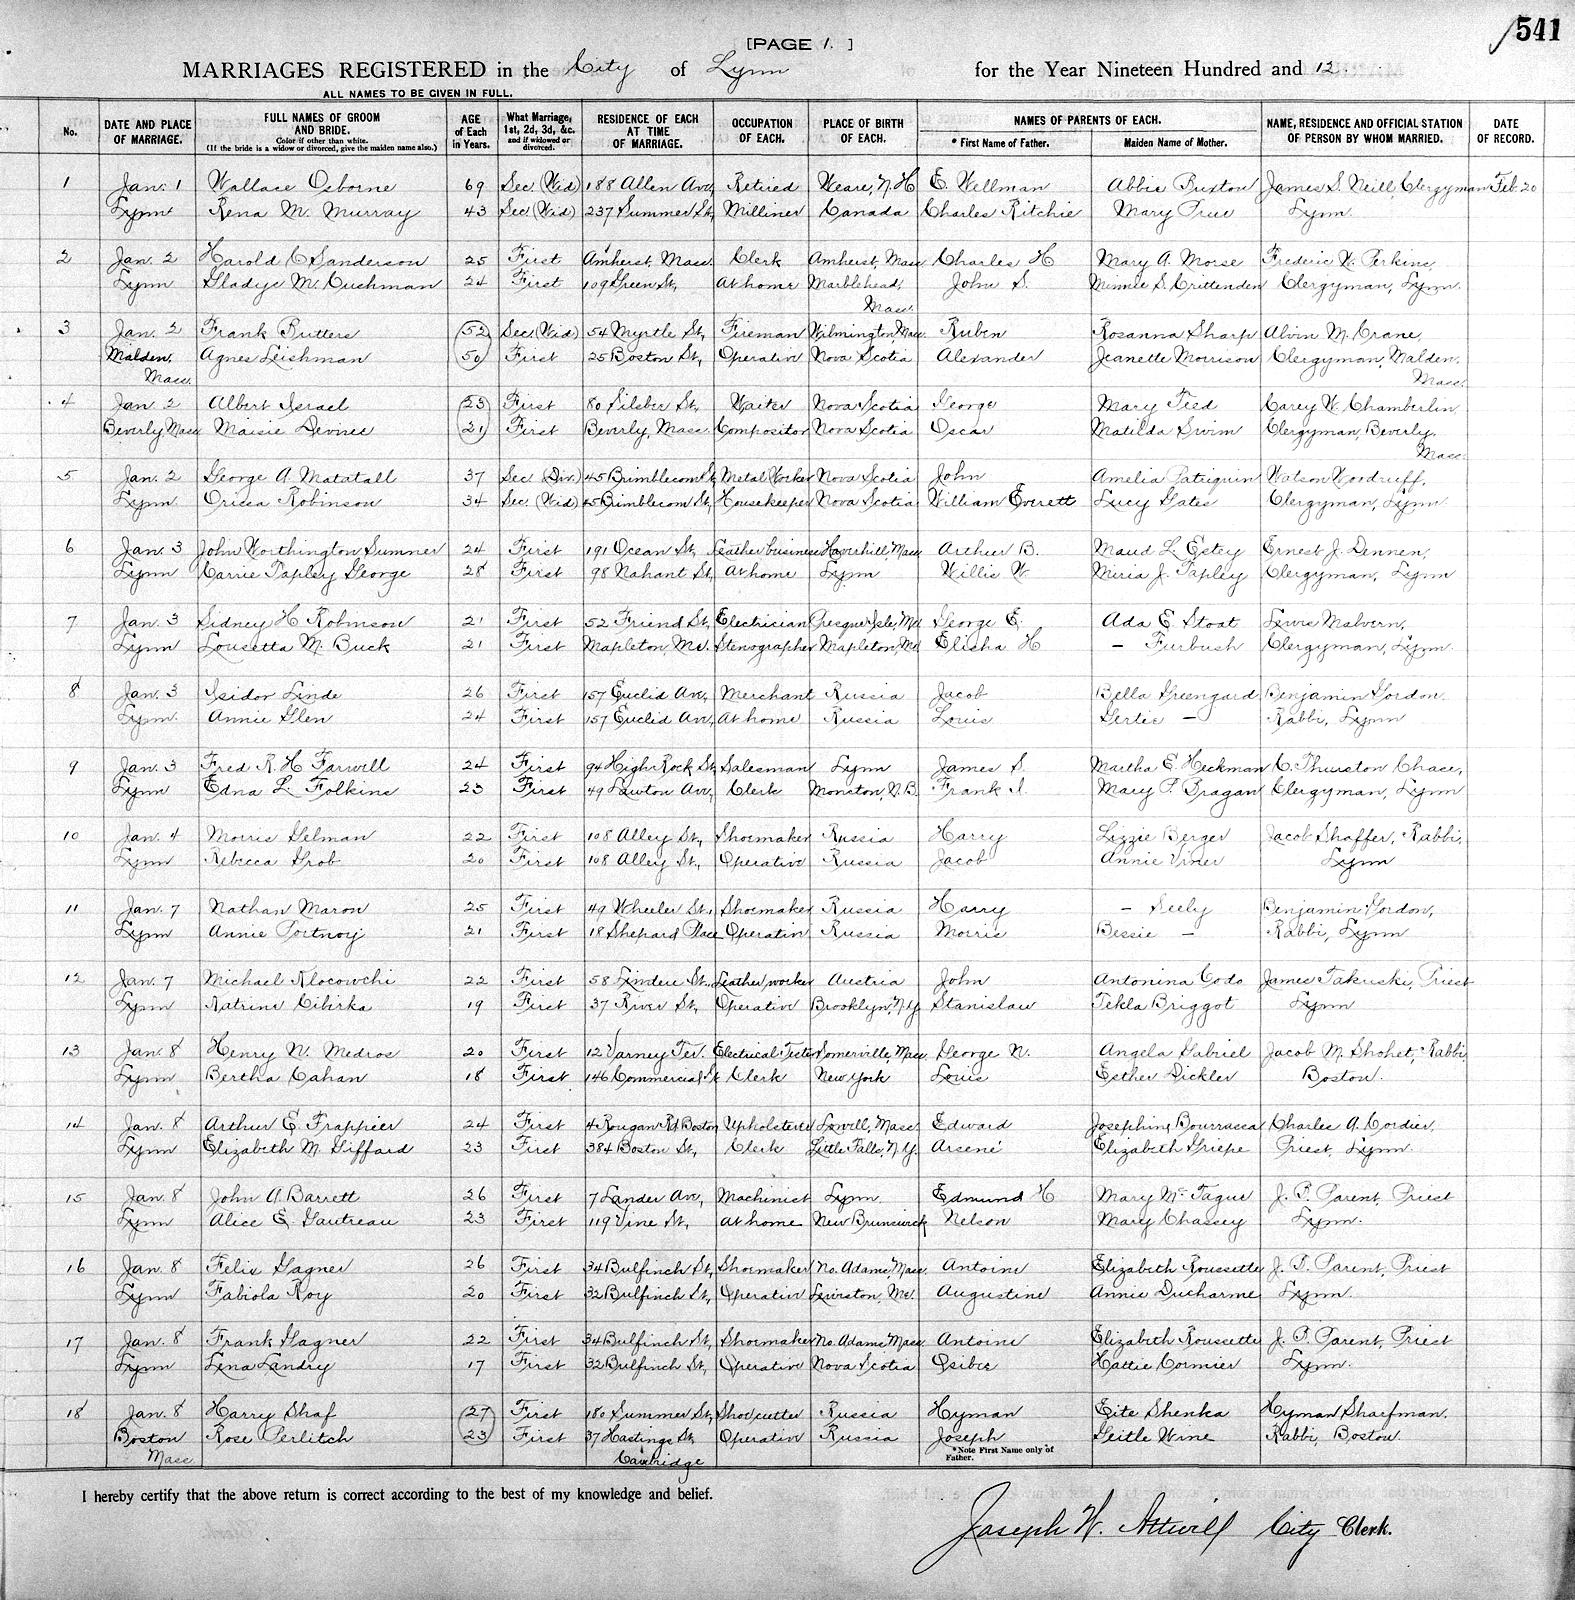 541
[PAGE 1. ]
MARRIAGES REGISTERED in the City of Lynn for the Year Nineteen Hundred and 12.
ALL NAMES TO BE GIVEN IN FULL.
No. DATE AND PLACE OF MARRIAGE. FULL NAMES OF GROOM AND BRIDE. Color if other than white. (If the bride is a widow or divorced, give the maiden name also.) AGE of Each in Years. What Marriage, 1st, 2d, 3d, &c. and if widowed or divorced. RESIDENCE OF EACH AT TIME OF MARRIAGE. OCCUPATION OF EACH. PLACE OF BIRTH OF EACH. NAMES OF PARENTS OF EACH. * First Name of Father. Maiden Name of Mother. NAME, RESIDENCE AND OFFICIAL STATION OF PERSON BY WHOM MARRIED. DATE OF RECORD.
1 Jan. 1 Wallace Osborne 69 Sec (Wid) 188 Allen Ave, Retired Weare, N. H E. Wellman Abbie Buxton James S. Neill Clergyman Feb. 20
Lynn Rena M. Murray 43 Sec (Wid) 237 Summer St, Milliner Canada Charles Ritchie Mary True Lynn.
2 Jan. 2 Harold C Sanderson 25 First Amherst, Mass. Clerk Amherst, Mass. Charles H Mary A. Morse Frederic W. Perkins,
Lynn Gladys M. Cushman 24 First 109 Green St, At home Marblehead, John S. Minnie S. Crittenden Clergyman, Lynn.
Mass.
3 Jan. 2 Frank Butters 52 Sec (Wid) 54 Myrtle St, Fireman Wilmington, Mass. Ruben Rosanna Sharp Alvin M. Crane,
Malden, Agnes Leishman 50 First 25 Boston St, Operative Nova Scotia Alexander Jeanette Morrison Clergyman, Malden,
Mass. Mass.
4 Jan. 2 Albert Israel 23 First 80 Silsbee St, Waiter Nova Scotia George Mary Tied Carey W. Chamberlin
Beverly, Mass Maisie Devinee 21 First Beverly, Mass. Compositor Nova Scotia Oscar Matilda Swim Clergyman, Beverly,
Mass.
5 Jan. 2 George A. Matatall 37 Sec (Div.) 45 Brimblecom St, Metal Worker Nova Scotia John Amelia Patriquin Watson Woodruff,
Lynn Oressa Robinson 34 Sec. (Wid) 25 Brimblecom St, Housekeeper Nova Scotia William Everett Lucy Gates Clergyman, Lynn.
6 Jan. 3 John Worthington Sumner 24 First 191 Ocean St, Leather business Haverhill, Mass. Arthur B. Maud L. Estey Ernest J. Dennen,
Lynn Carrie Tapley George 28 First 98 Nahant St, At home Lynn Willis W. Miria J. Tapley Clergyman, Lynn
7 Jan. 3 Sidney H Robinson 21 First 52 Friend St, Electrician Presque Isle, Me. George E. Ada E. Stoat Lewis Malvern,
Lynn Lousetta M. Buck 21 First Mapleton, Me. Stenographer Mapleton, Me. Elisha H – Furbush Clergyman, Lynn.
8 Jan. 3 Isidor Linde 26 First 157 Euclid Ave, Merchant Russia Jacob Bella Greengard Benjamin Gordon.
Lynn. Annie Glen 24 First 157 Euclid Ave, At home Russia Louis Gertie – Rabbi, Lynn
9 Jan. 3 Fred R. H Farwell 24 First 94 High Rock St, Salesman Lynn James S. Martha E. Heckman C. Thurston Chase,
Lynn Edna L. Folkins 23 First 49 Lawton Ave, Clerk Moncton, N. B. Frank I. Mary P. Bragan Clergyman, Lynn
10 Jan. 4 Morris Gelman 22 First 108 Alley St, Shoemaker Russia Harry Lizzie Berger Jacob Shaffer, Rabbi,
Lynn Rebecca Grob 20 First 108 Alley St, Operative Russia Jacob Annie Viner Lynn
11 Jan. 7 Nathan Maron 25 First 49 Wheeler St. Shoemaker Russia Harry – Seely Benjamin Gordon,
Lynn Annie Portnoy 21 First 18 Shepard Place Operative Russia Morris Bessie – Rabbi, Lynn
12 Jan. 7 Michael Klocowchi 22 First 58 Linden St. Leather worker Austria John Antonina Codo James Takuski, Priest
Lynn Katrine Cibirka 19 First 37 River St, Operative Brooklyn, N.Y. Stanislaw Tekla Briggot Lynn
13 Jan. 8 Henry N. Medros 20 First 12 Varney Ter. Electrical Tester Somerville, Mass. George N. Angela Gabriel Jacob M. Shohet, Rabbi,
Lynn Bertha Cahan 18 First 146 Commercial St Clerk New York Louis Esther Sickler Boston.
14 Jan. 8 Arthur E. Frappier 24 First 4 Rougan Rd Boston Upholsterer Lowell, Mass. Edward Josephine Bourrassa Charles A. Cordier,
Lynn Elizabeth M. Giffard 23 First 384 Boston St, Clerk Little Falls, N.Y. Arsené Elizabeth Griepe Priest, Lynn.
15 Jan. 8 John A. Barrett 26 First 7 Lander Ave, Machinist Lynn. Edmund H Mary McTague J. P. Parent, Priest
Lynn Alice E. Gautreau 23 First 119 Vine St, At home New Brunswick Nelson Mary Chassey Lynn.
16 Jan. 8 Felix Gagner 26 First 34 Bulfinch St, Shoemaker No. Adams, Mass. Antoine Elizabeth Roussette J. P. Parent, Priest
Lynn Fabiola Roy 20 First 32 Bulfinch St, Operative Lewiston, Me. Augustine Annie Ducharme Lynn.
17 Jan. 8 Frank Gagner 22 First 34 Bulfinch St, Shoemaker No. Adams Mass. Antoine Elizabeth Roussette J. P. Parent, Priest
Lynn Lena Landry 17 First 32 Bulfinch St, Operative Nova Scotia Osibee Hattie Cormier Lynn.
18 Jan. 8 Harry Shaf 27 First 180 Summer St, Shoecutter Russia Hyman Eite Shenka Hyman Sharfman.
Boston Rose Perlitch 23 First 37 Hastings St, Operative Russia Joseph Geitle Wine Rabbi, Boston.
Mass. Cambridge *Note First Name only of Father.
I hereby certify that the above return is correct according to the best of my knowledge and belief.
Joseph W. Attwill City Clerk.